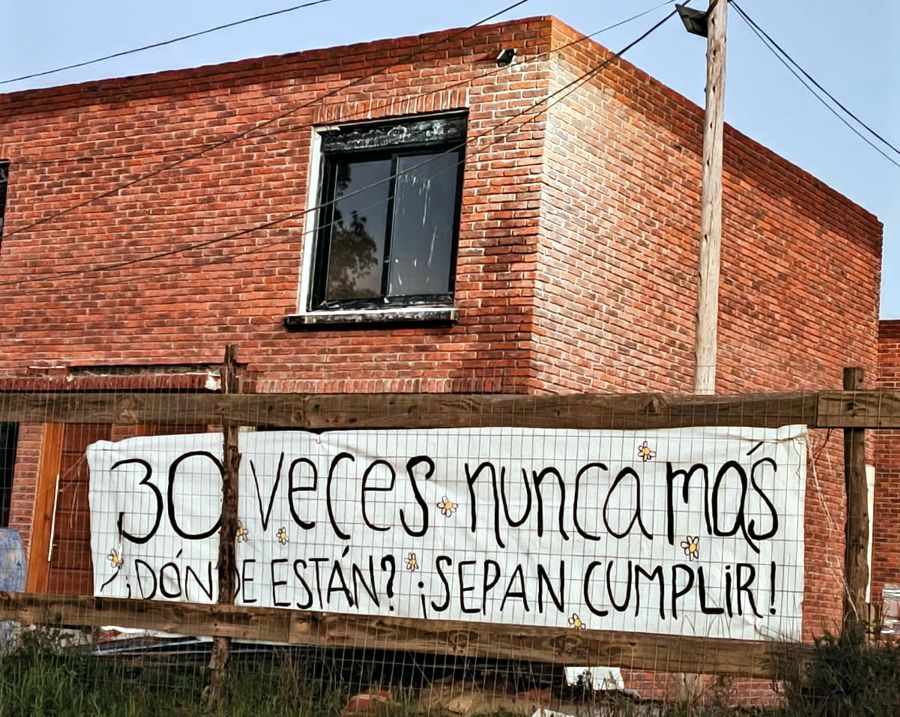 30 veces nunca más
¿DÓNDE ESTÁN? ¡SEPAN CUMPLIR!